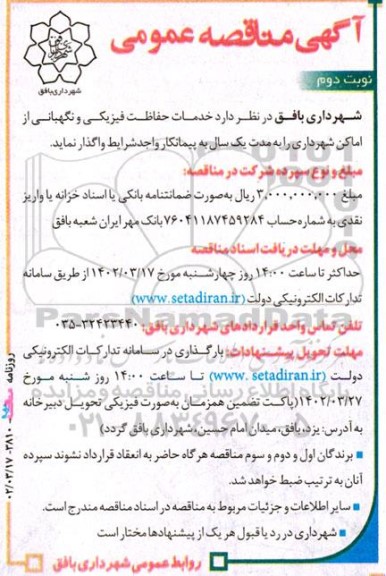 آگهی مناقصه عمومی
شهرداری بافق
نوبت دوم
شهرداری بافق در نظر دارد خدمات حفاظت فیزیکی و نگهبانی از
اماکن شهرداری را به مدت یک سال به پیمانکار واجدشرایط واگذار نماید.
مبلغ و نوع سپرده شرکت در مناقصه:
مبلغ ۳,۰۰۰,۰۰۰,۰۰۰ ریال به‌صورت ضمانتنامه بانکی یا اسناد خزانه یا واریز
نقدی به شماره حساب ۷۶۰۴۱۱۸۷۴۵۹۲۸۴ بانک مهر ایران شعبه بافق
محل و مهلت دریافت اسناد مناقصه
حداکثر تا ساعت ۱۴:۰۰ روز چهارشنبه مورخ ۱۴۰۲/۰۳/۱۷ از طریق سامانه
تدارکات الکترونیکی دولت (www.setadiran.ir)
تلفن تماس واحد قراردادهای شهرداری بافق: ۳۲۴۲۳۴۴۰-۰۳۵
مهلت تحویل پیشنهادات: بارگذاری در سامانه تدارکات الکترونیکی
دولت (www. setadiran.ir) تا ساعت ۱۴:۰۰ روز شنبه مورخ
۱۴۰۲/۰۳/۲۷(پاکت تضمین همزمان به‌صورت فیزیکی تحویل دبیرخانه
به آدرس: یزد، بافق، میدان امام حسین، شهرداری بافق گردد)
■ برندگان اول و دوم و سوم مناقصه هرگاه حاضر به انعقاد قرارداد نشوند سپرده
آنان به ترتیب ضبط خواهد شد.
■ سایر اطلاعات و جزئیات مربوط به مناقصه در اسناد مناقصه مندرج است.
■ شهرداری در رد یا قبول هر یک از پیشنهادها مختار است
روابط عمومی شهرداری بافق
روزنامه
۰۲/۰۳/۱۷-۳۸۱۰
ParsNamadData